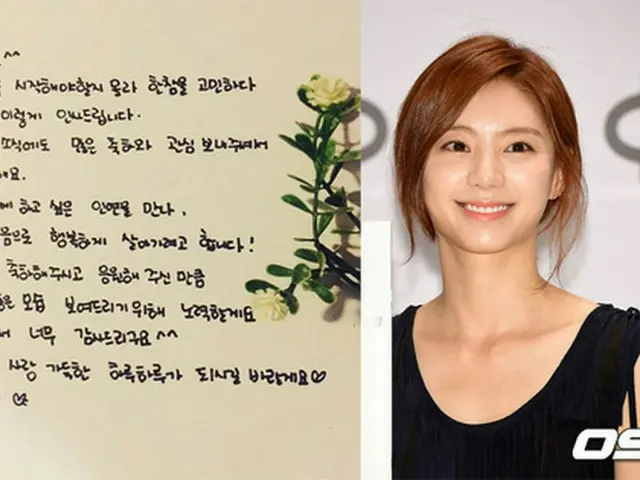 ^^
시작해야할지 몰라 한참을 고민하다
이렇게 인사드립니다.
소식에도 많은 축하와 관심 보내주셔서
해요.
하고 싶은 인연을 만나,
몸으로 행복하게 살아가려고 합니다!
축하해주시고 응원해 주신 만큼
모습 보여드리기위해 노력할게요
너무 감사드리구요^^
사랑 가득한 하루하루가 되시길 바랄게요♡
♡
OS